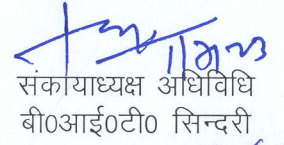 संकायाध्यक्ष अधिविधि
बी0आई0टी0 सिन्दरी